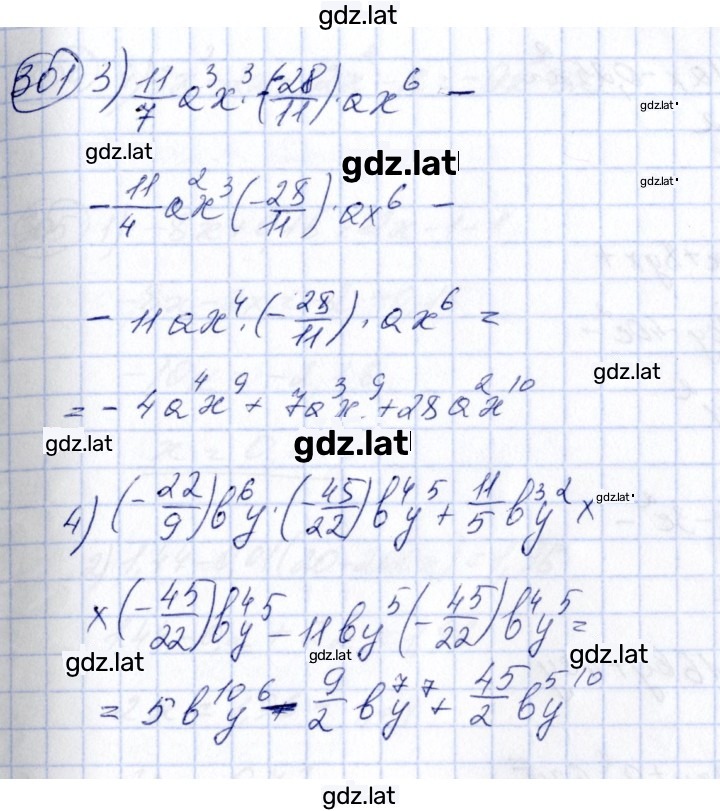 gdz.lat
301 3) 11/7 a³x³ · (-28/11) · ax⁶ -
gdz.lat
gdz.lat
gdz.lat
gdz.lat
- 11/4 a²x³ (-28/11) · ax⁶ -
- 11ax⁴ · (-28/11) · ax⁶ =
gdz.lat
= - 4a⁴x⁹ + 7a³x⁹ + 28a²x¹⁰
gdz.lat
gdz.lat
4) (-22/9) b⁶y · (-45/22) b⁴y⁵ + 11/5 b³y² ×
gdz.lat
× (-45/22) b⁴y⁵ - 11by⁵ (-45/22) b⁴y⁵ =
gdz.lat
gdz.lat
gdz.lat
= 5b¹⁰y⁶ - 9/2 b⁷y⁷ + 45/2 b⁵y¹⁰
gdz.lat